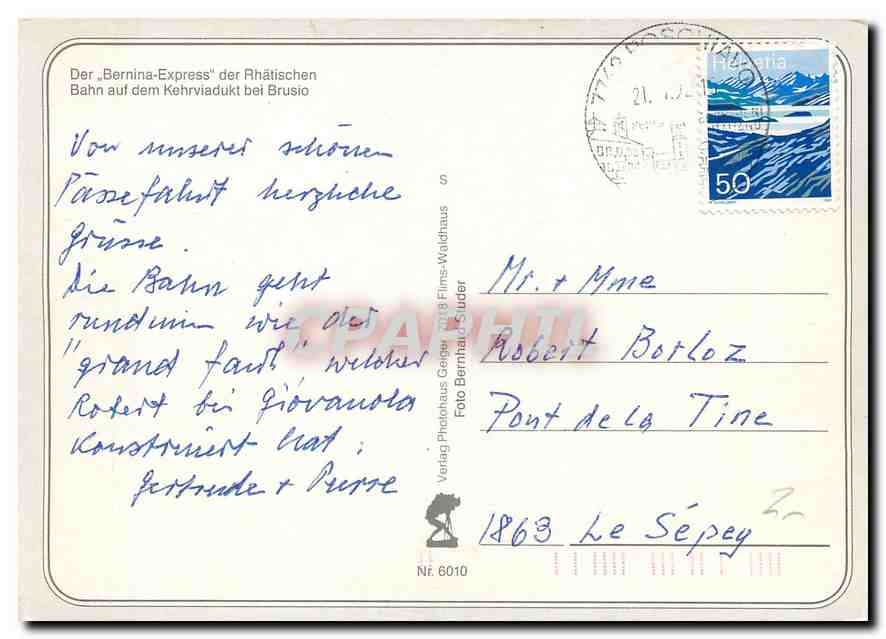 Der „Bernina-Express" der Rhätischen
Bahn auf dem Kehrviadukt bei Brusio
Von unserer schönen
Pässefahrt herzliche
Grüsse.
Die Bahn geht
rundum wie der
"grand " welcher
Robert bei Giovanola
Konstruiert hat.
Gertrude + Pierre
S
Verlag Photohaus Geiger 7018 Flims-Waldhaus
Foto Bernhard Studer
Nr. 6010
7742 POSCHIAVO
21.
Helvetia
50
Mr. + Mme
Robert Borloz
Pont de la Tine
1863 Le Sépey
2.-
CPAPHIL